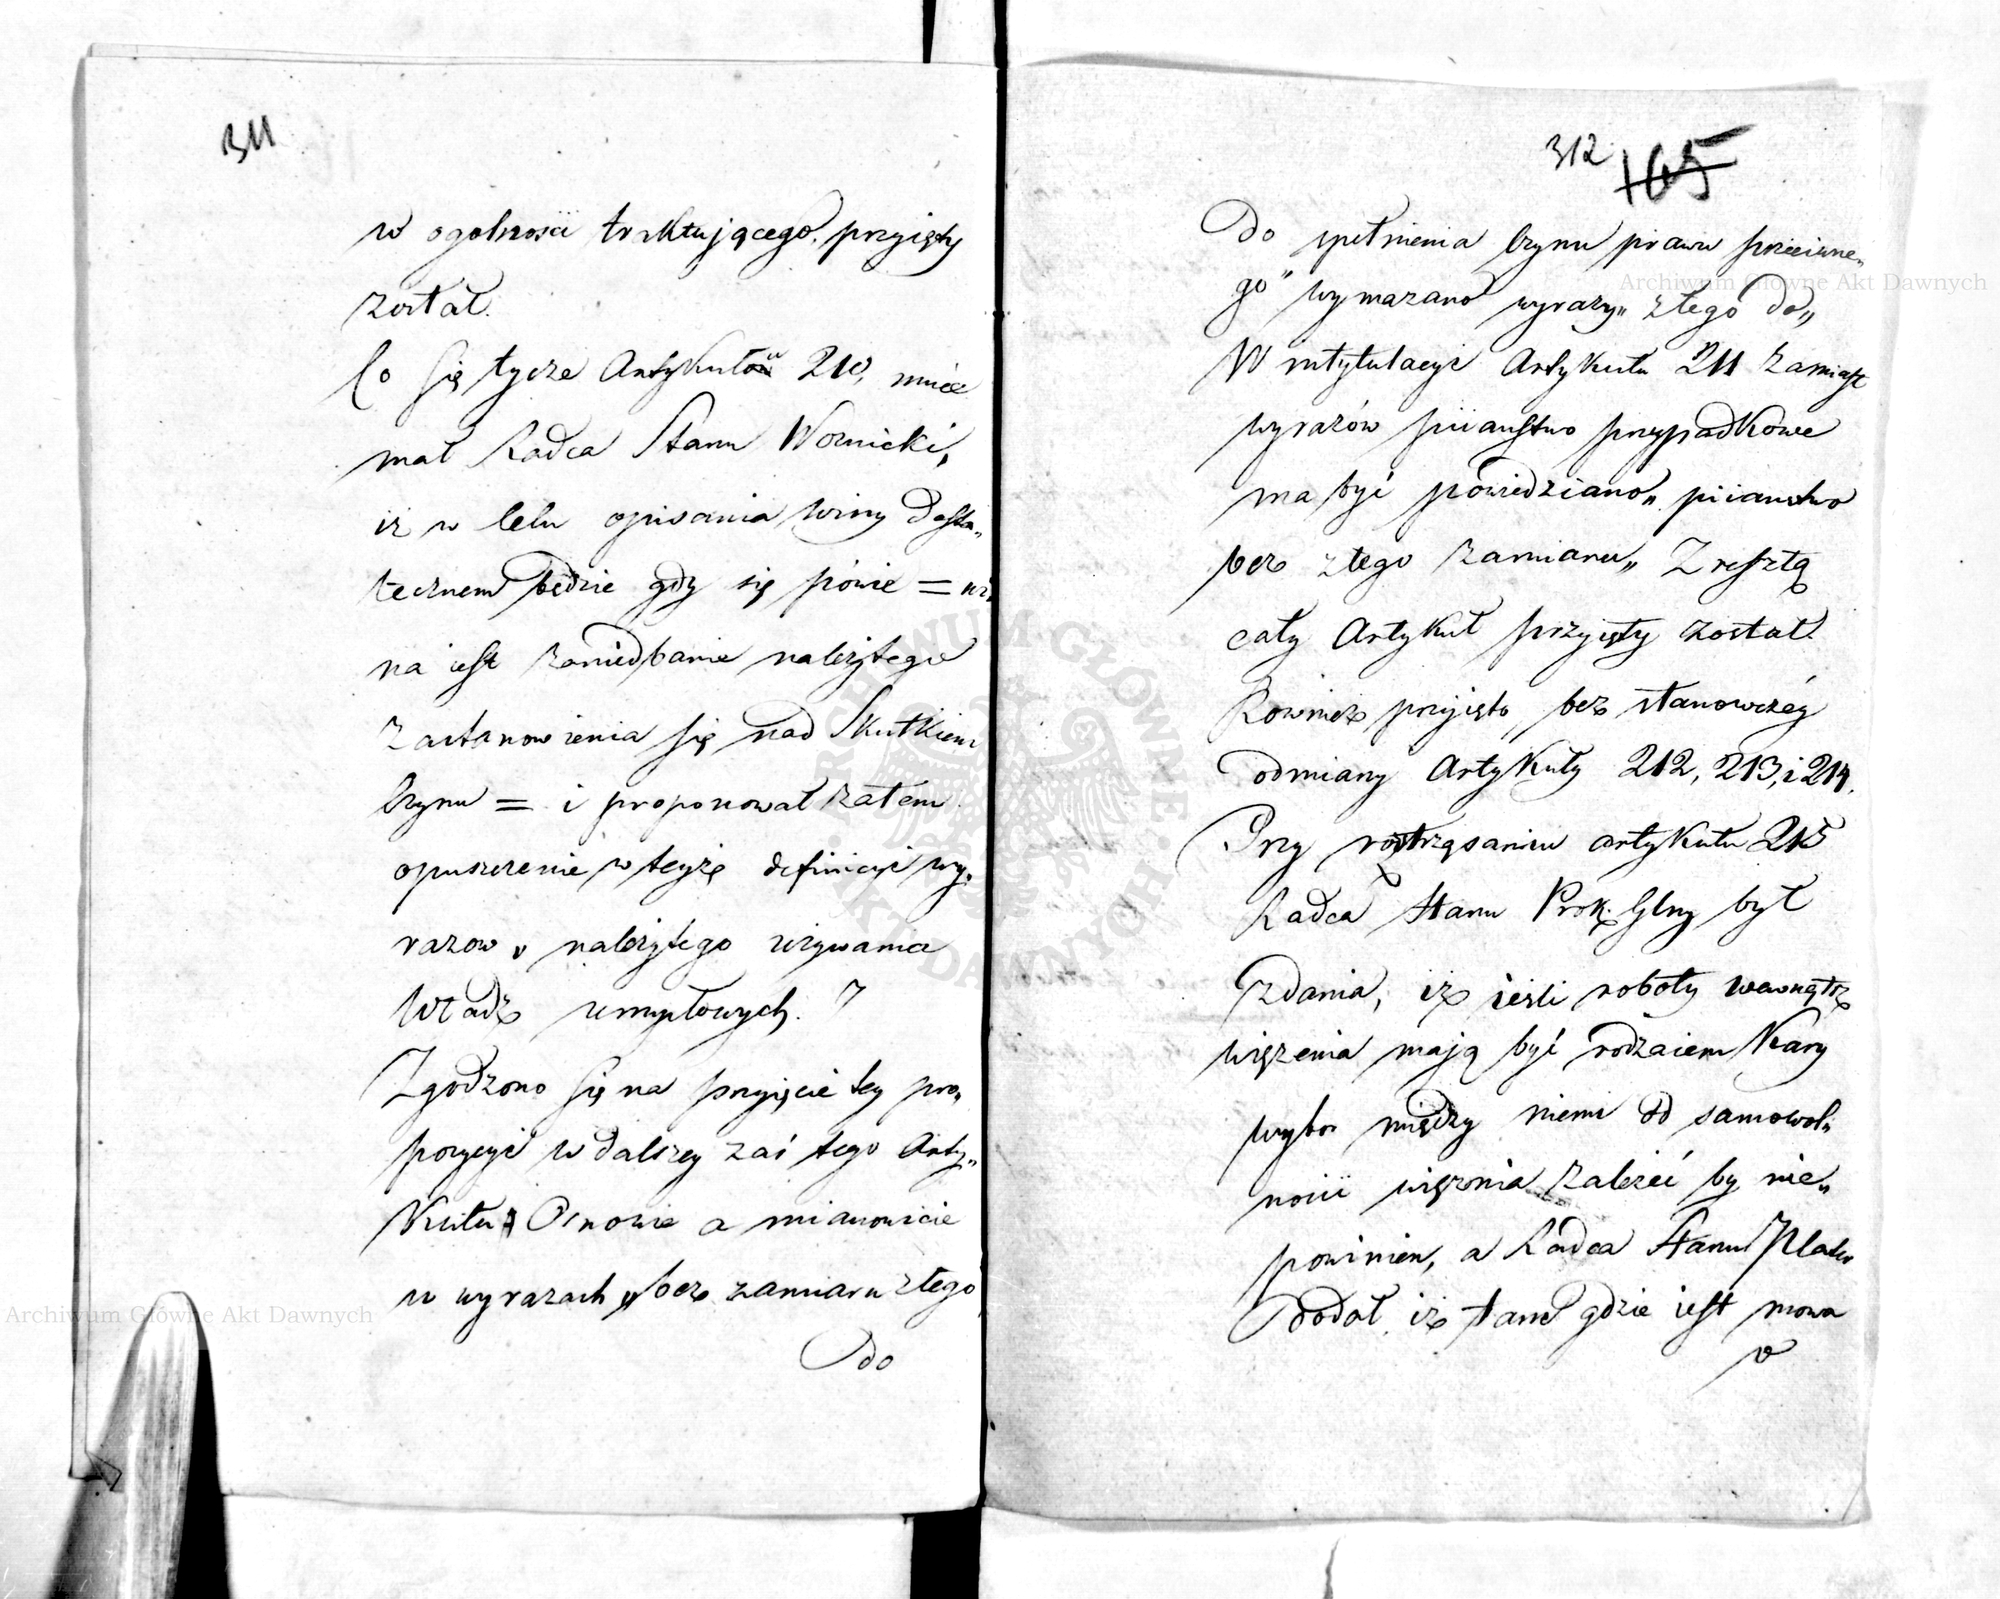 311
w ogolności traktującego przyięty
został.
Co się tycze Artykułu 210, mnie
mał Radca Stanu Woznicki,
iż w celu opisania winy dosta„
tecznem będzie gdy się powie = wi
na iest zaniedbanie należytego
zastanowienia się nad Skutkiem
Czynu = i proponował zatem
opuszczenie w teyże definicyi wy„
razow „ należytego używania
Władz umysłowych. "
Zgodzono się na przyięcie tey pro„
pozycyi w dalszey zaś tego Arty„
Kułu Osnowie a mianowicie
w wyrazach „ bez zamiaru złego
do
312 165
Do spełnienia Czynu prawu przeciwne„
go" wymazano wyrazy „ złego do„
W intytulacyi Artykułu 211 zamiast
wyrazów piianstwo przypadkowe
ma być powiedziano „ piianstwo
bez złego zamiaru „ Z resztą
cały Artykuł przyięty został.
Rownież przyięto bez stanowczéy
odmiany Artykuły 212, 213, i 214.
Przy roztrząsaniu artykułu 215
Radca Stanu Prok. Glny był
zdania, iż ieśli roboty wewnątrz
więzienia mają być rodzaiem Kary
wybor między niemi od samowol„
ności więznia zależeć by nie„
powinien, a Radca Stanu Plater
dodał iż tam gdzie iest mowa
o
Archiwum Główne Akt Dawnych
Archiwum Główne Akt Dawnych
ARCHIWUM GŁÓWNE AKT DAWNYCH